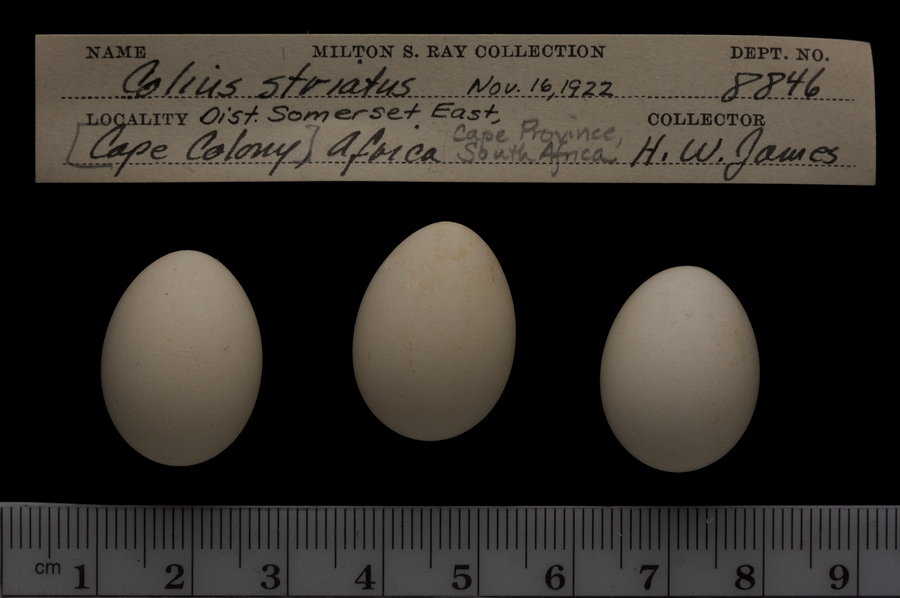 NAME MILTON S. RAY COLLECTION DEPT. NO.
Colius striatus Nov. 16, 1922 8846
LOCALITY Dist. Somerset East, COLLECTOR
[Cape Colony] Africa Cape Province, South Africa H. W. James
cm 1 2 3 4 5 6 7 8 9